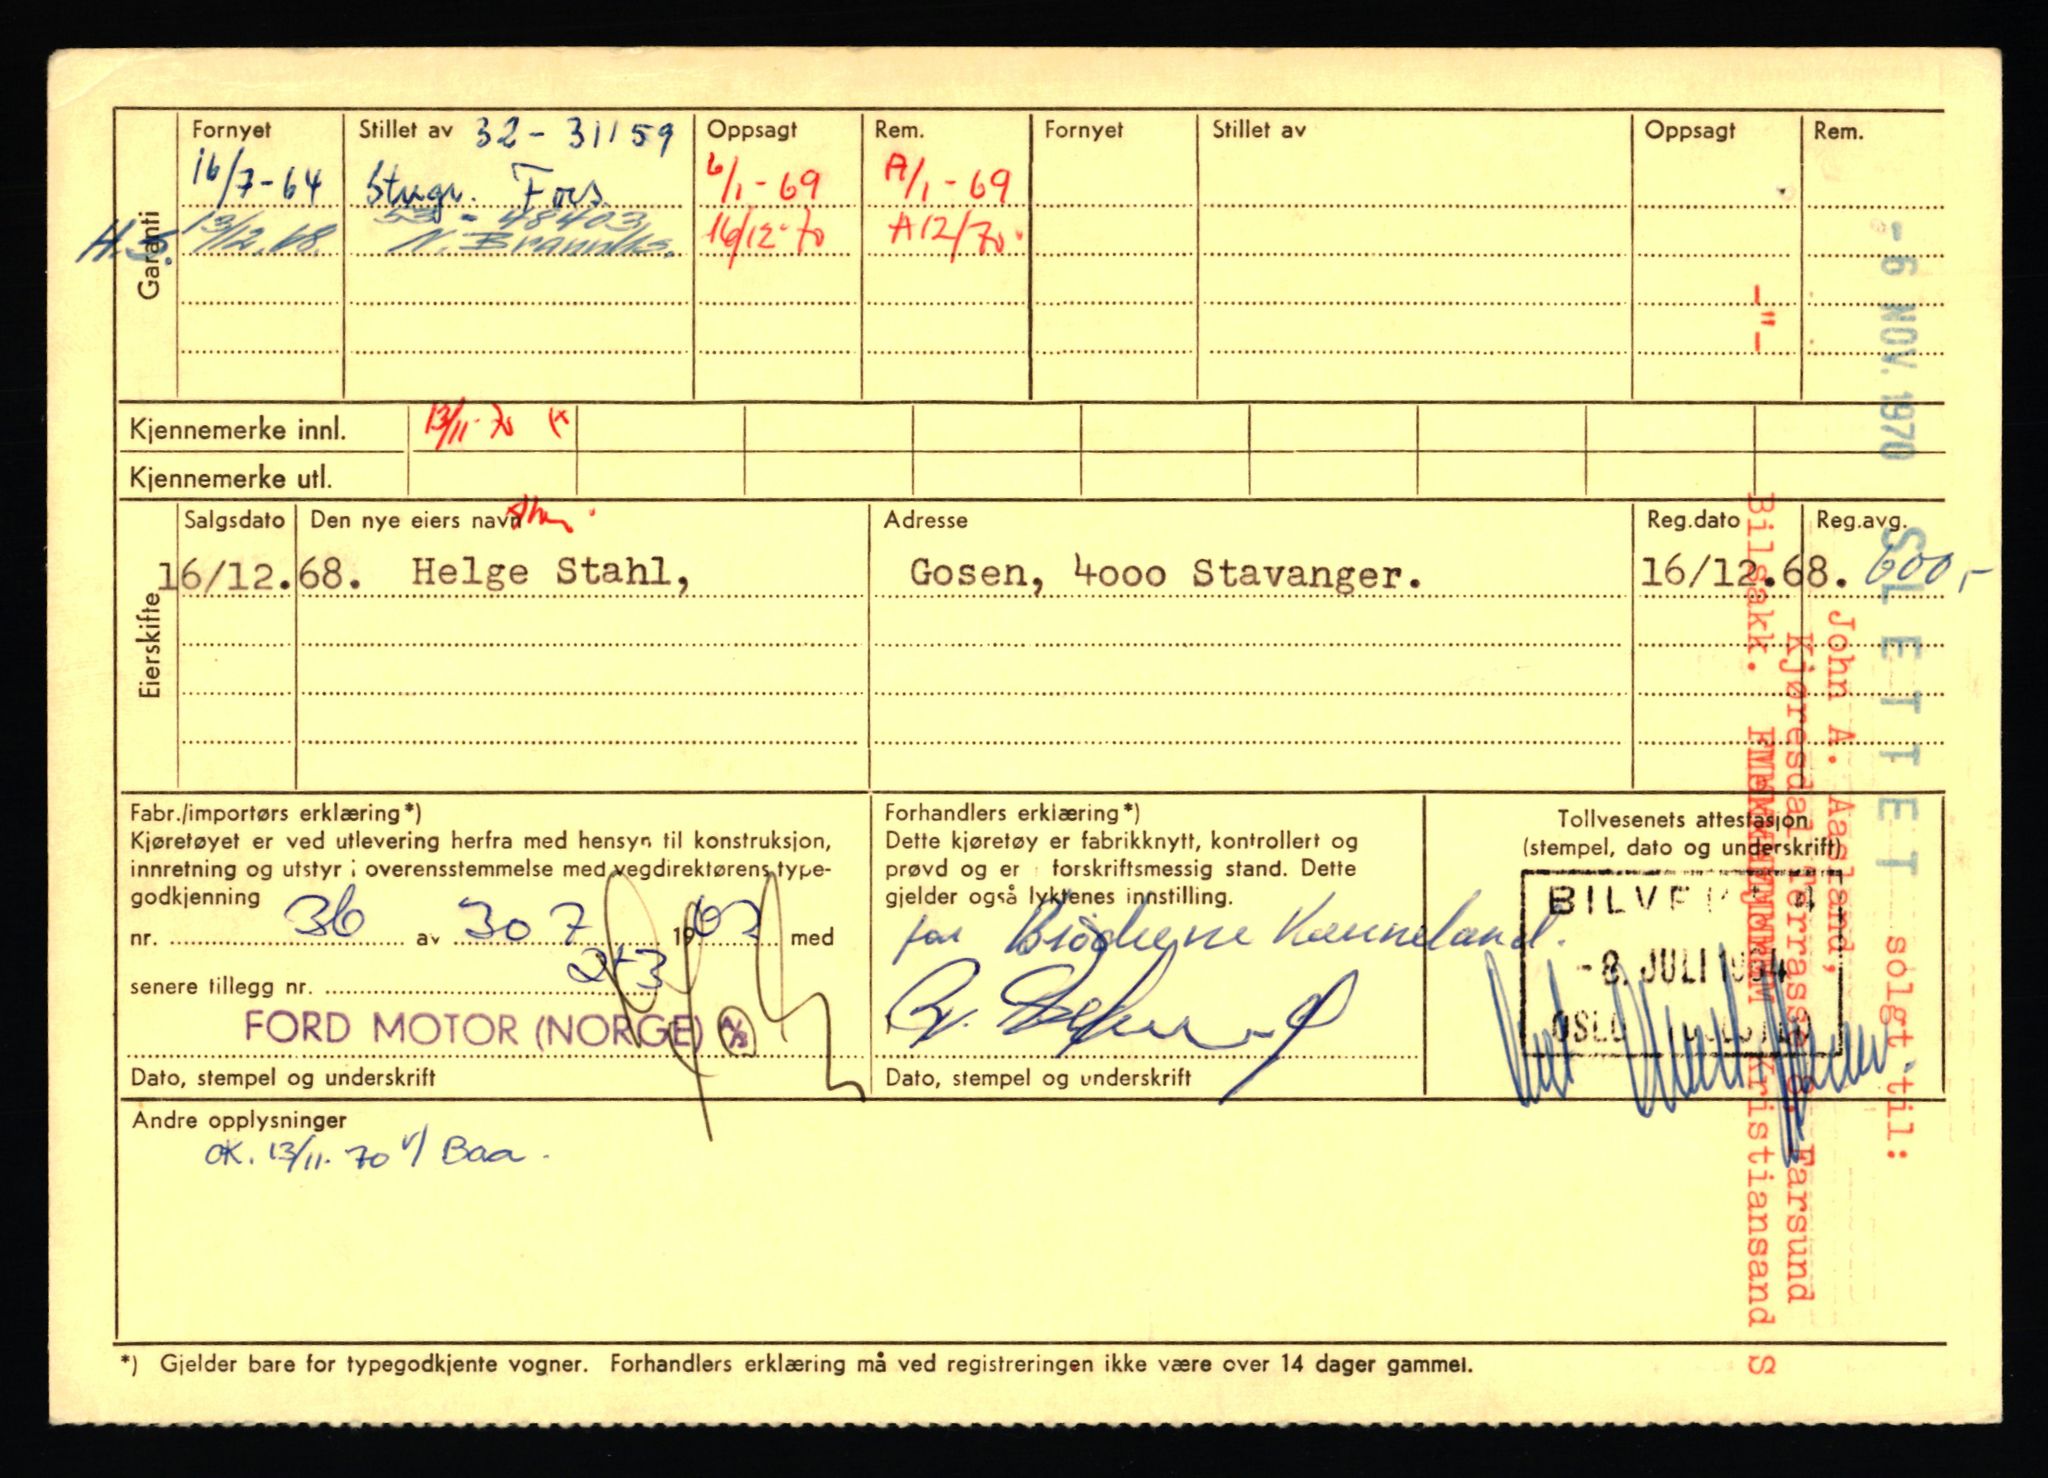 Garanti
Fornyet Stillet av 32-31159 Oppsagt Rem. Fornyet Stillet av Oppsagt Rem.
16/7-64 Stvgr. Fors. 6/1-69 A/1-69
H.S. 13/12.68. 53-48403, 16/12-70 A12/70.
Kjennemerke innl. 13/11-70 (x
Kjennemerke utl.
Eierskifte
Salgsdato Den nye eiers navn Adresse Reg.dato Reg.avg.
16/12.68. Helge Stahl, Gosen, 4000 Stavanger. 16/12.68. 600,-
Fabr./importørs erklæring*)
Kjøretøyet er ved utlevering herfra med hensyn til konstruksjon,
innretning og utstyr i overensstemmelse med vegdirektørens type-
godkjenning
nr. 36 av 30 7 1963 med
senere tillegg nr. 2+3
FORD MOTOR (NORGE) A/S
Dato, stempel og underskrift
Forhandlers erklæring*)
Dette kjøretøy er fabrikknytt, kontrollert og
prøvd og er i forskriftsmessig stand. Dette
gjelder også lyktenes innstilling.
for Brødrene Kanneland.
Dato, stempel og underskrift
Tollvesenets attestasjon
(stempel, dato og underskrift)
-8. JULI 1964
OSLO
Andre opplysninger
OK. 13/11-70 v/ Baa.
*) Gjelder bare for typegodkjente vogner. Forhandlers erklæring må ved registreringen ikke være over 14 dager gammel.
-6 NOV. 1970 SLETTET solgt til:
John A. Aasland,
Kjøresdal Terrasse 8. Farsund
-"- Bilsakk. Kristiansand S